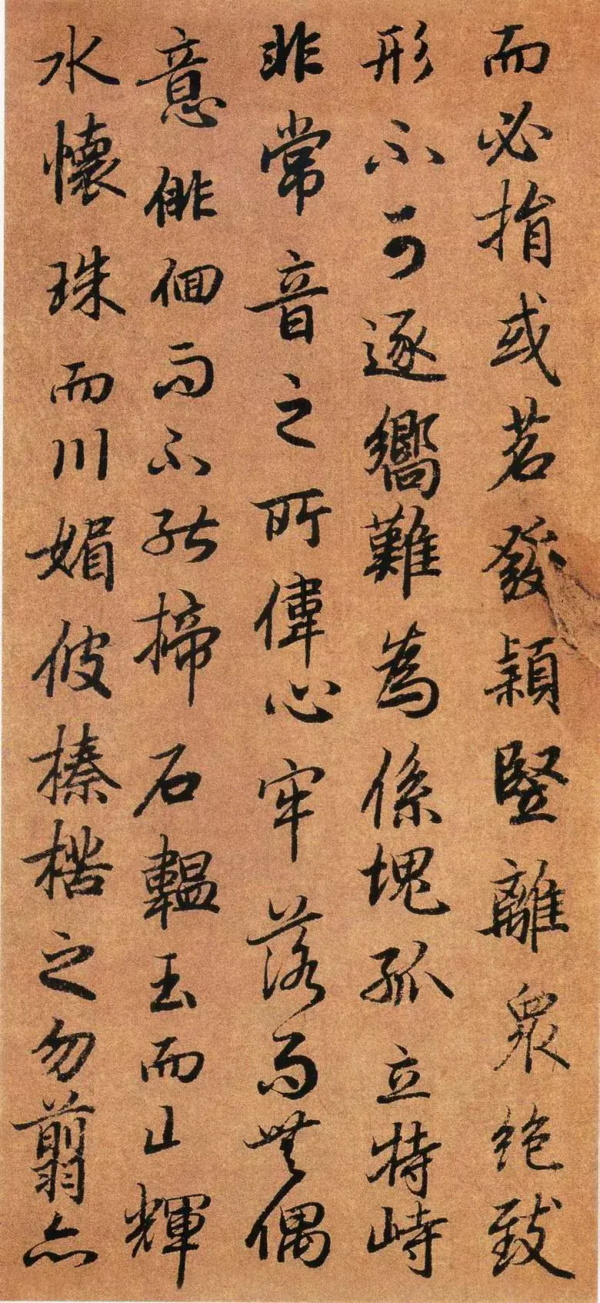 而必捐或苕發穎豎離衆絕致
形不可逐嚮難為係塊孤立特峙
非常音之所偉心牢落而無偶
意俳佪而不能揥石韞玉而山輝
水懷珠而川媚彼榛楛之勿翦亦